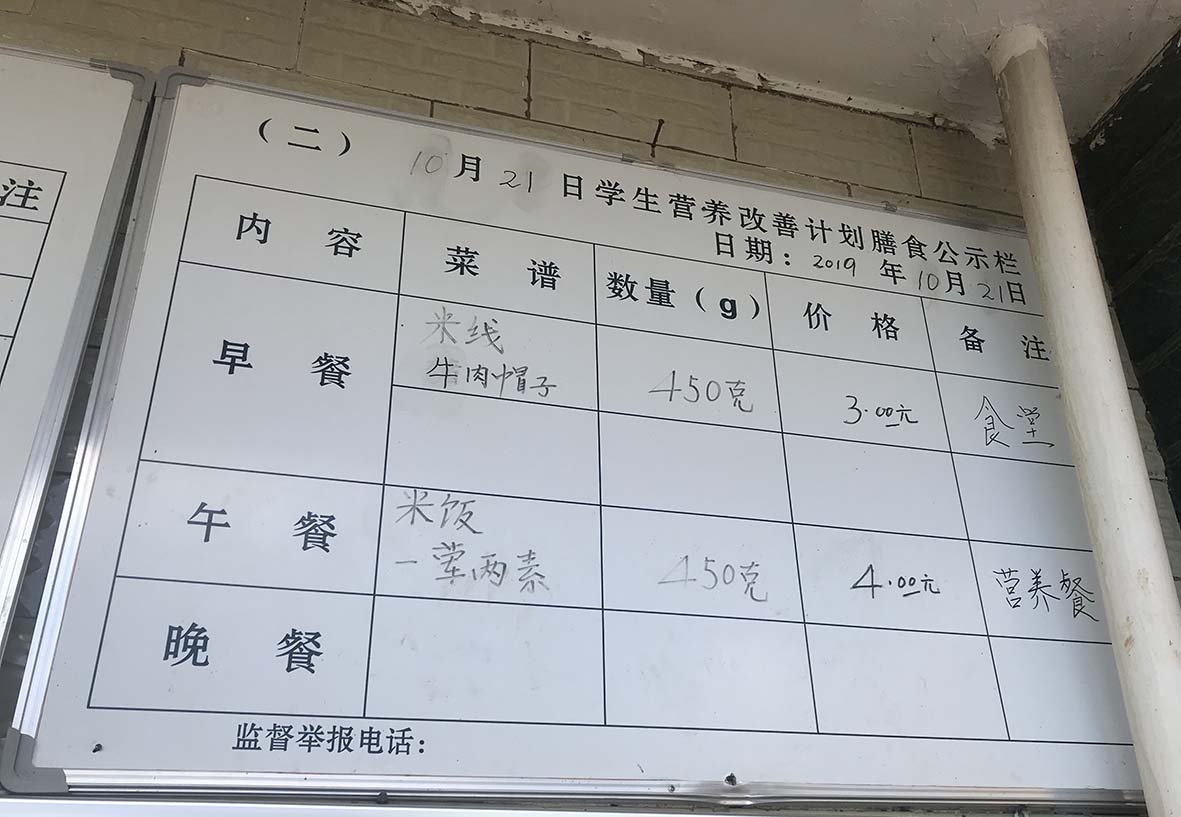 注
(二)
10月21日学生营养改善计划膳食公示栏
日期：2019年10月21日
内容 菜谱 数量(g) 价格 备注
早餐 米线 牛肉帽子 450克 3.00元 食堂
午餐 米饭 一荤两素 450克 4.00元 营养餐
晚餐
监督举报电话：